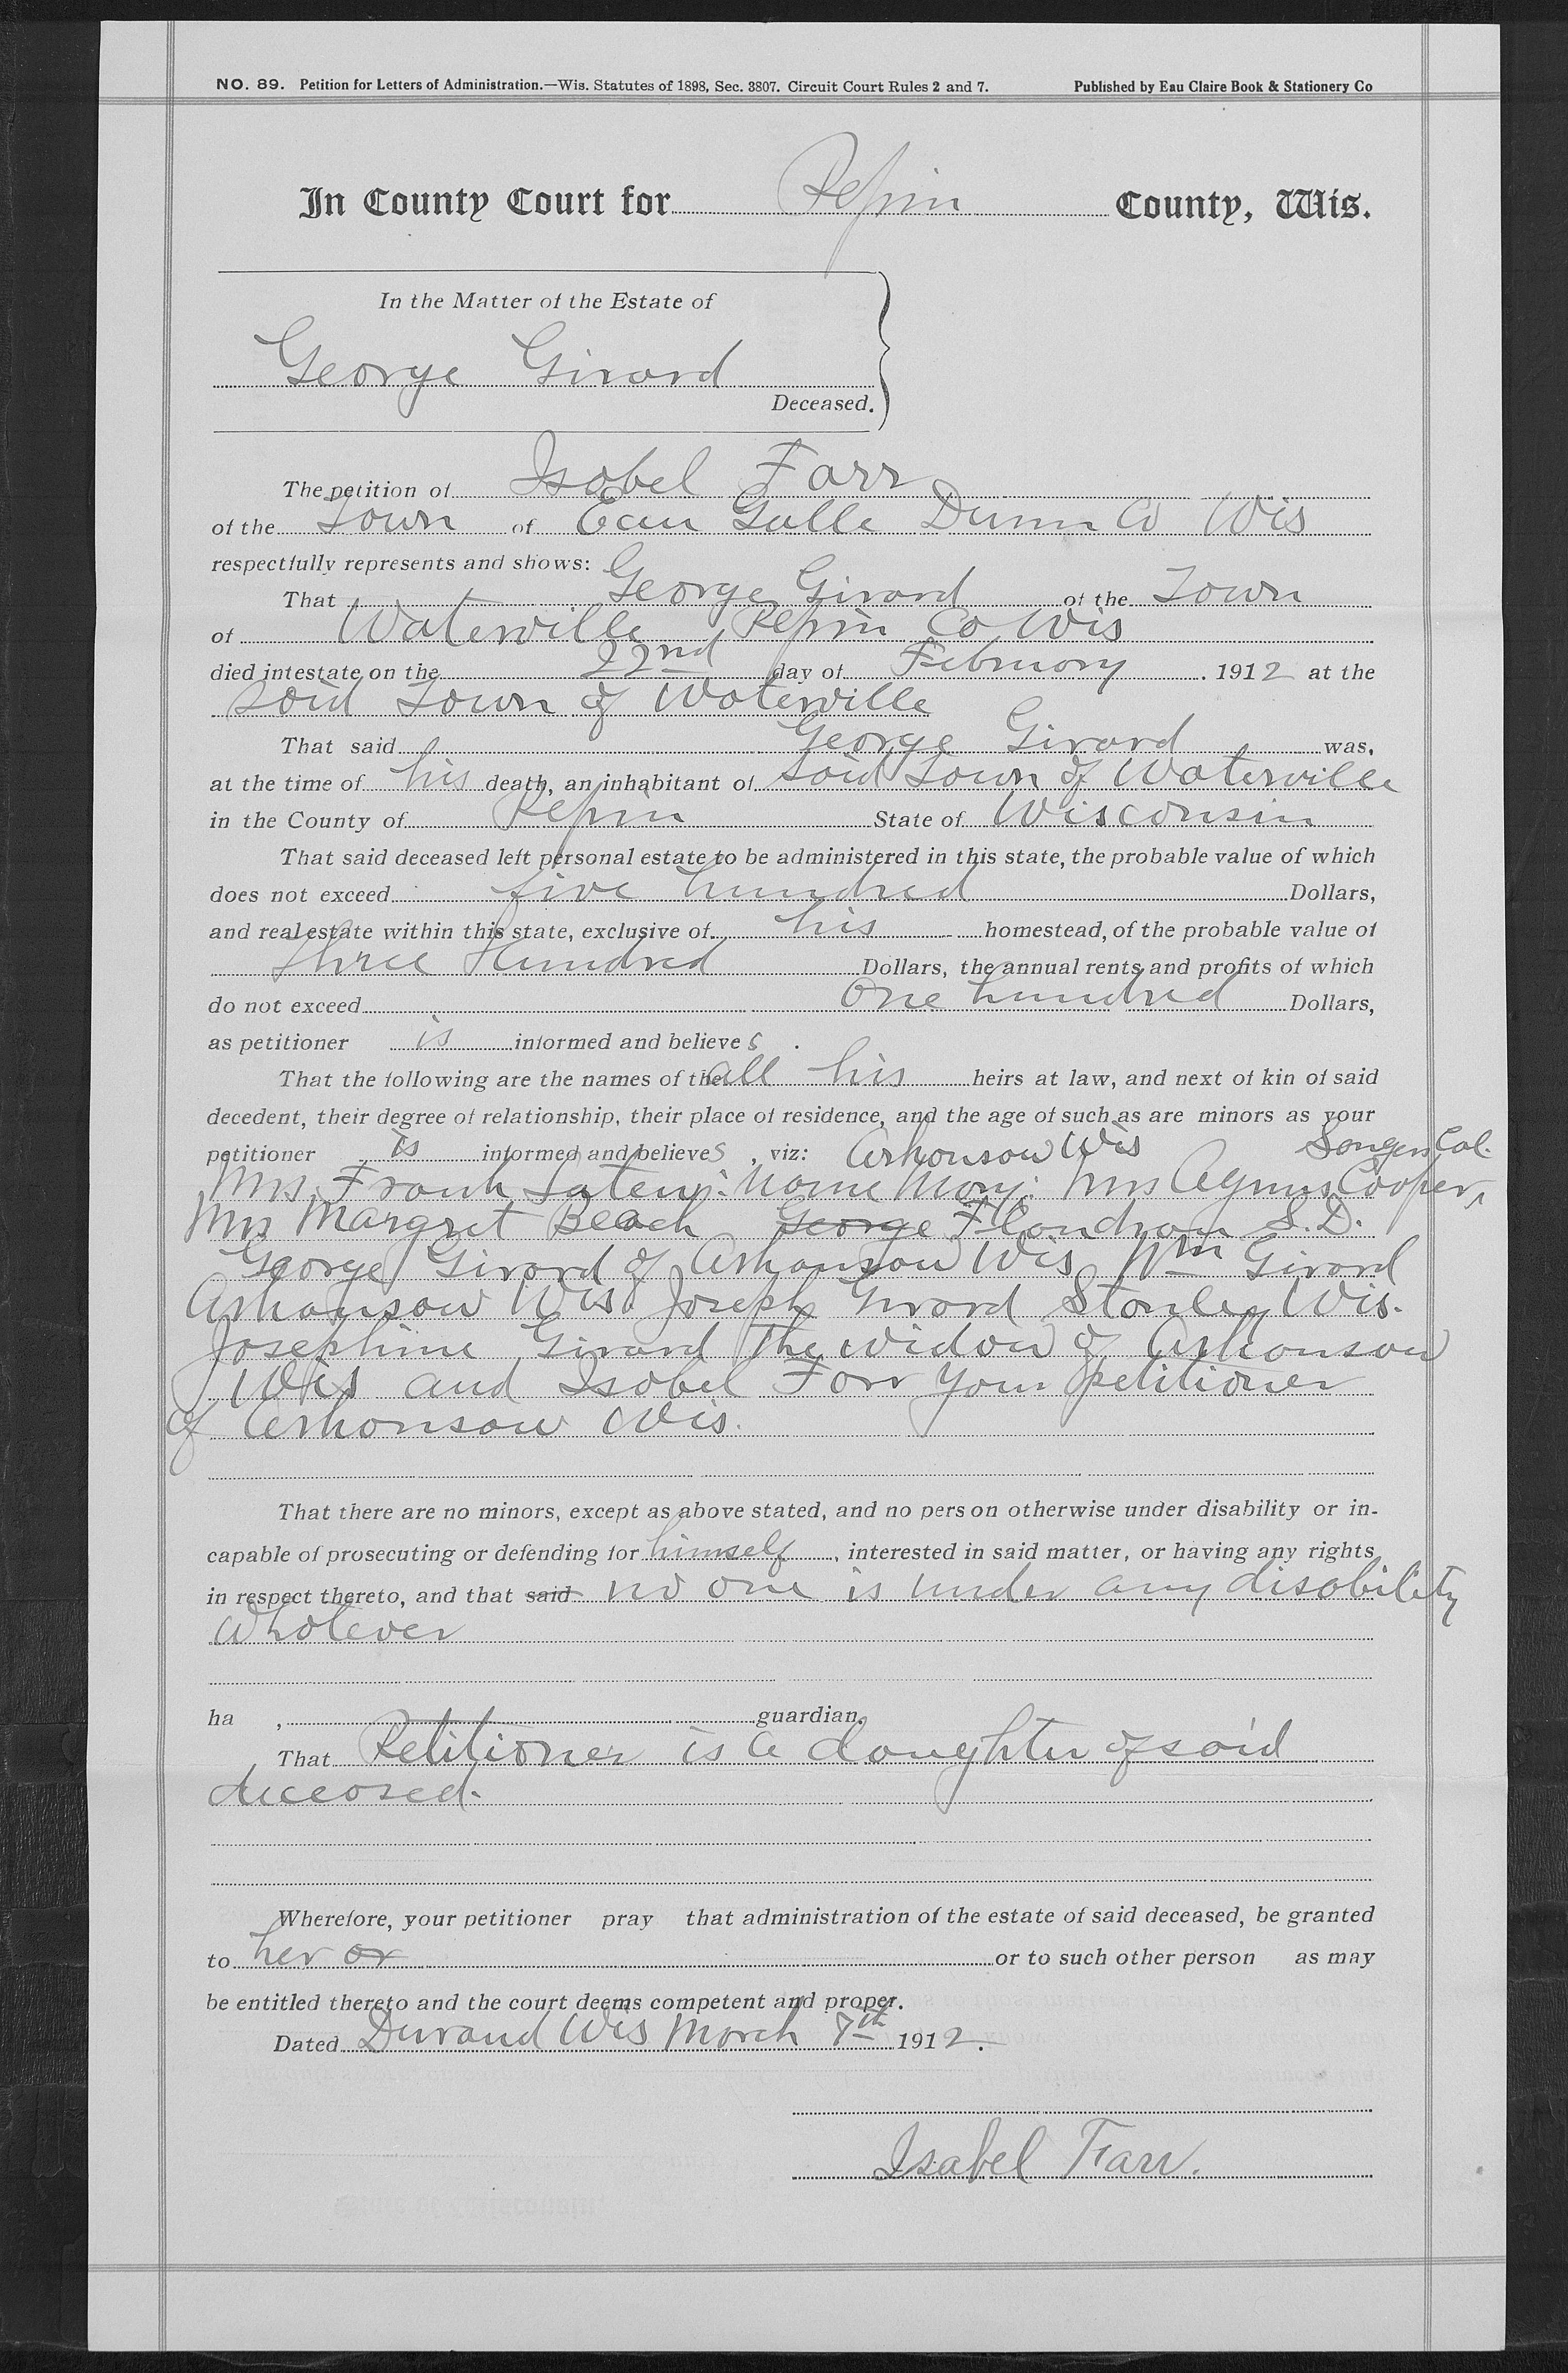 NO. 89. Petition for Letters of Administration.—Wis. Statutes of 1898, Sec. 3807. Circuit Court Rules 2 and 7. Published by Eau Claire Book & Stationery Co
In County Court for Pepin County, Wis.
In the Matter of the Estate of
George Girard
Deceased.
The petition of Isabel Farr
of the Town of Eau Galle Dunn Co Wis
respectfully represents and shows:
That George Girard of the Town
of Waterville Pepin Co Wis
died intestate on the 22nd day of February 1912 at the
said Town of Waterville
That said George Girard was,
at the time of his death, an inhabitant of said Town of Waterville
in the County of Pepin State of Wisconsin
That said deceased left personal estate to be administered in this state, the probable value of which
does not exceed five hundred Dollars,
and real estate within this state, exclusive of his homestead, of the probable value of
Three Hundred Dollars, the annual rents and profits of which
do not exceed One hundred Dollars,
as petitioner is informed and believes .
That the following are the names of the all his heirs at law, and next of kin of said
decedent, their degree of relationship, their place of residence, and the age of such as are minors as your
petitioner is informed and believes, viz: Arkansaw Wis Cal.
Mrs. Frank name Mary: Mrs Agnus Cooper,
Mrs Margret Beach George Flandrau S.D.
George Girard of Arkansaw Wis Wm Girard
Arkansaw Wis. Joseph Girard Stanley Wis.
Josephine Girard The widow of Arkansaw
Wis and Isabel Farr your petitioner
of Arkansaw Wis.
That there are no minors, except as above stated, and no person otherwise under disability or in-
capable of prosecuting or defending for himself, interested in said matter, or having any rights
in respect thereto, and that said no one is under any disability
whatever
ha , guardian.
That Petitioner is a daughter of said
deceased.
Wherefore, your petitioner pray that administration of the estate of said deceased, be granted
to her or or to such other person as may
be entitled thereto and the court deems competent and proper.
Dated Durand Wis March 7th 1912.
Isabel Farr.